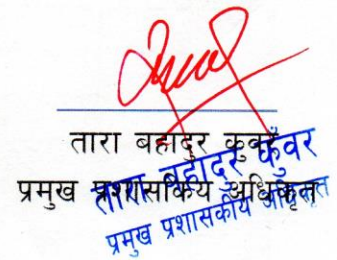 तारा बहादुर कुवर
प्रमुख प्रशासकिय अधिकृत
तारा बहादुर कुँवर
प्रमुख प्रशासकीय अधिकृत